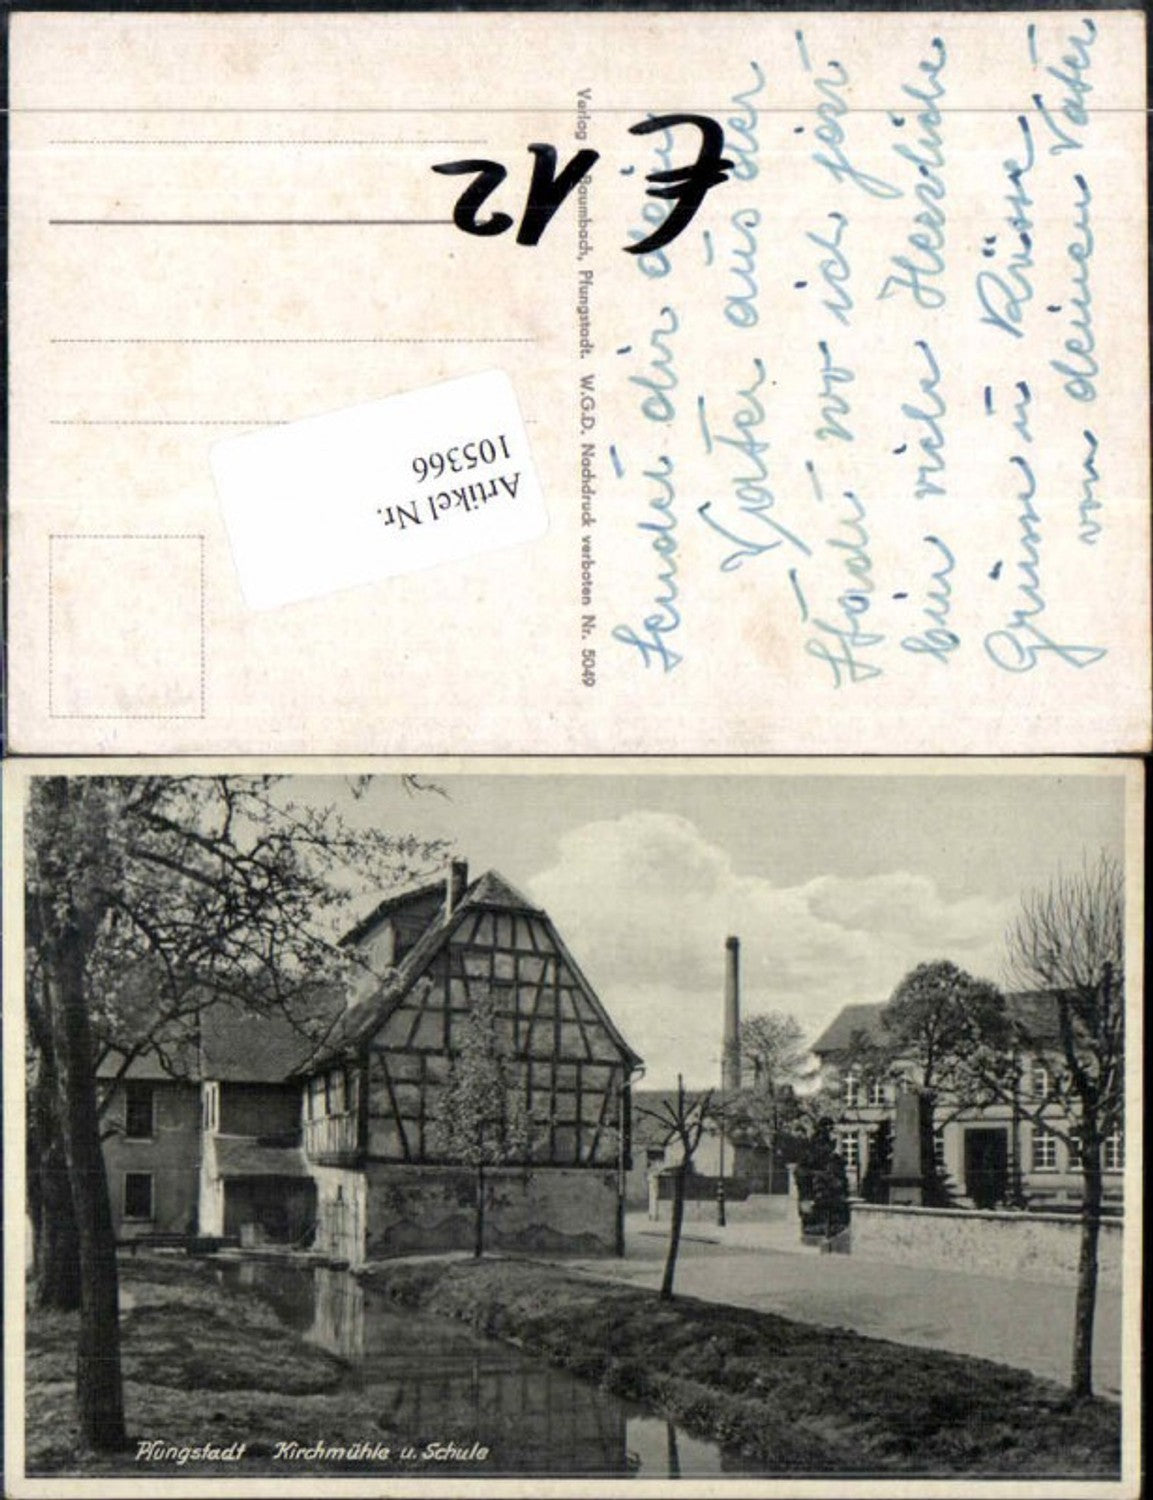 Sendet dir dein
Vater aus der
Stadt wo ich jetzt
bin viele Herzliche
Grüsse u Küsse
von deinen Vater
Verlag Baumbach, Pfungstadt. W.G.D. Nachdruck verboten Nr. 5049
€ 12
Artikel Nr.
105366
Pfungstadt Kirchmühle u. Schule